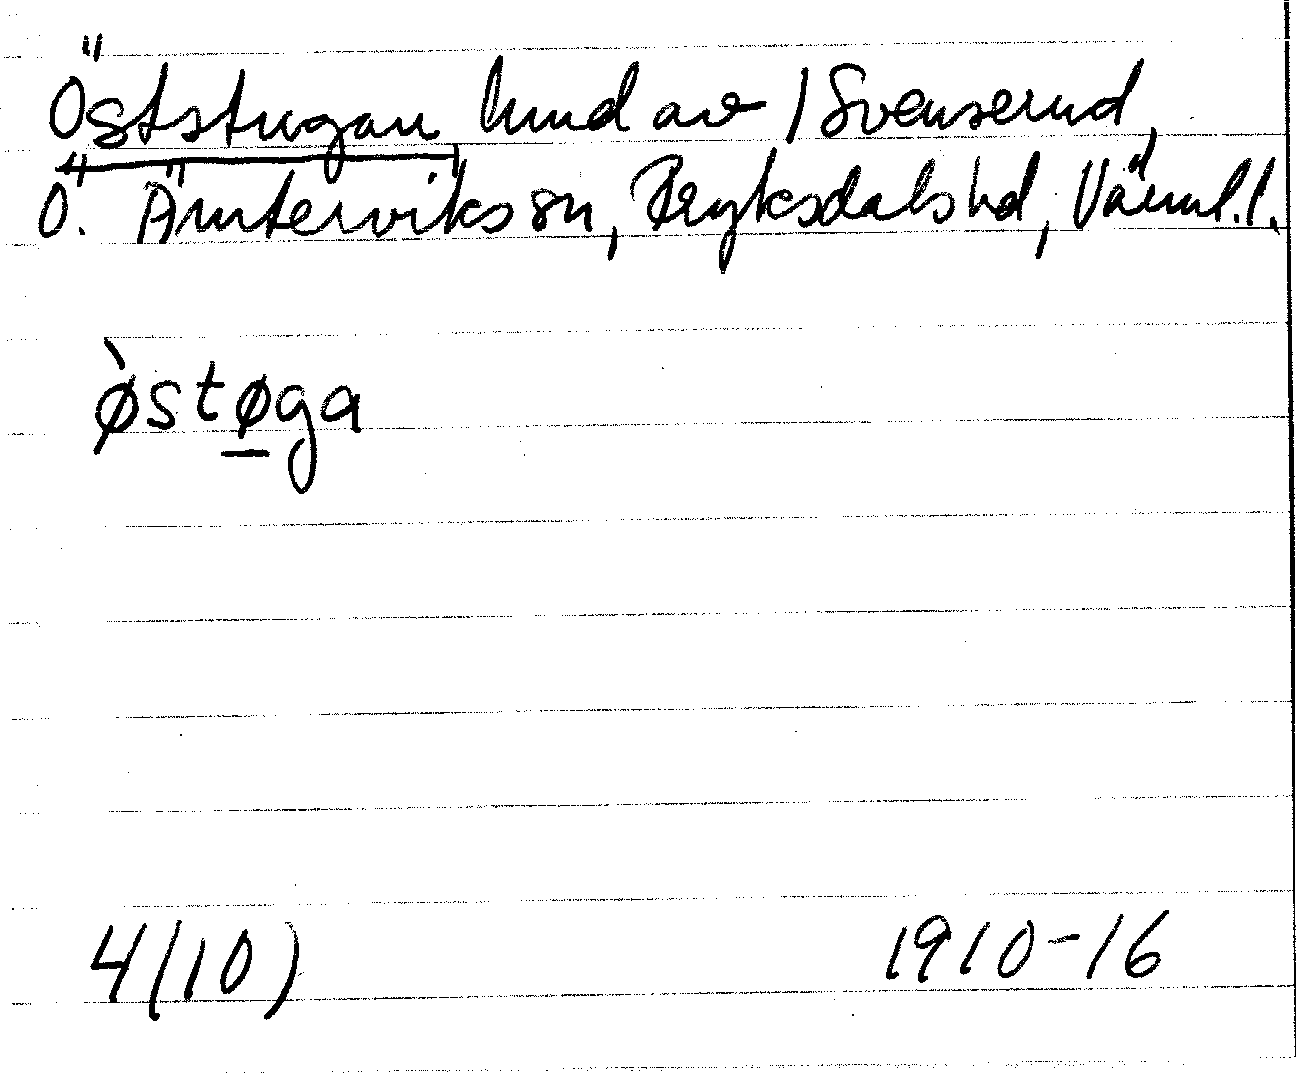 Öststugan, hmd av 1 Svenserud,
Ö. Ämterviks sn, Fryksdals hd, Värml.l.
ø̀stø̱ga
4(10) 1910-16